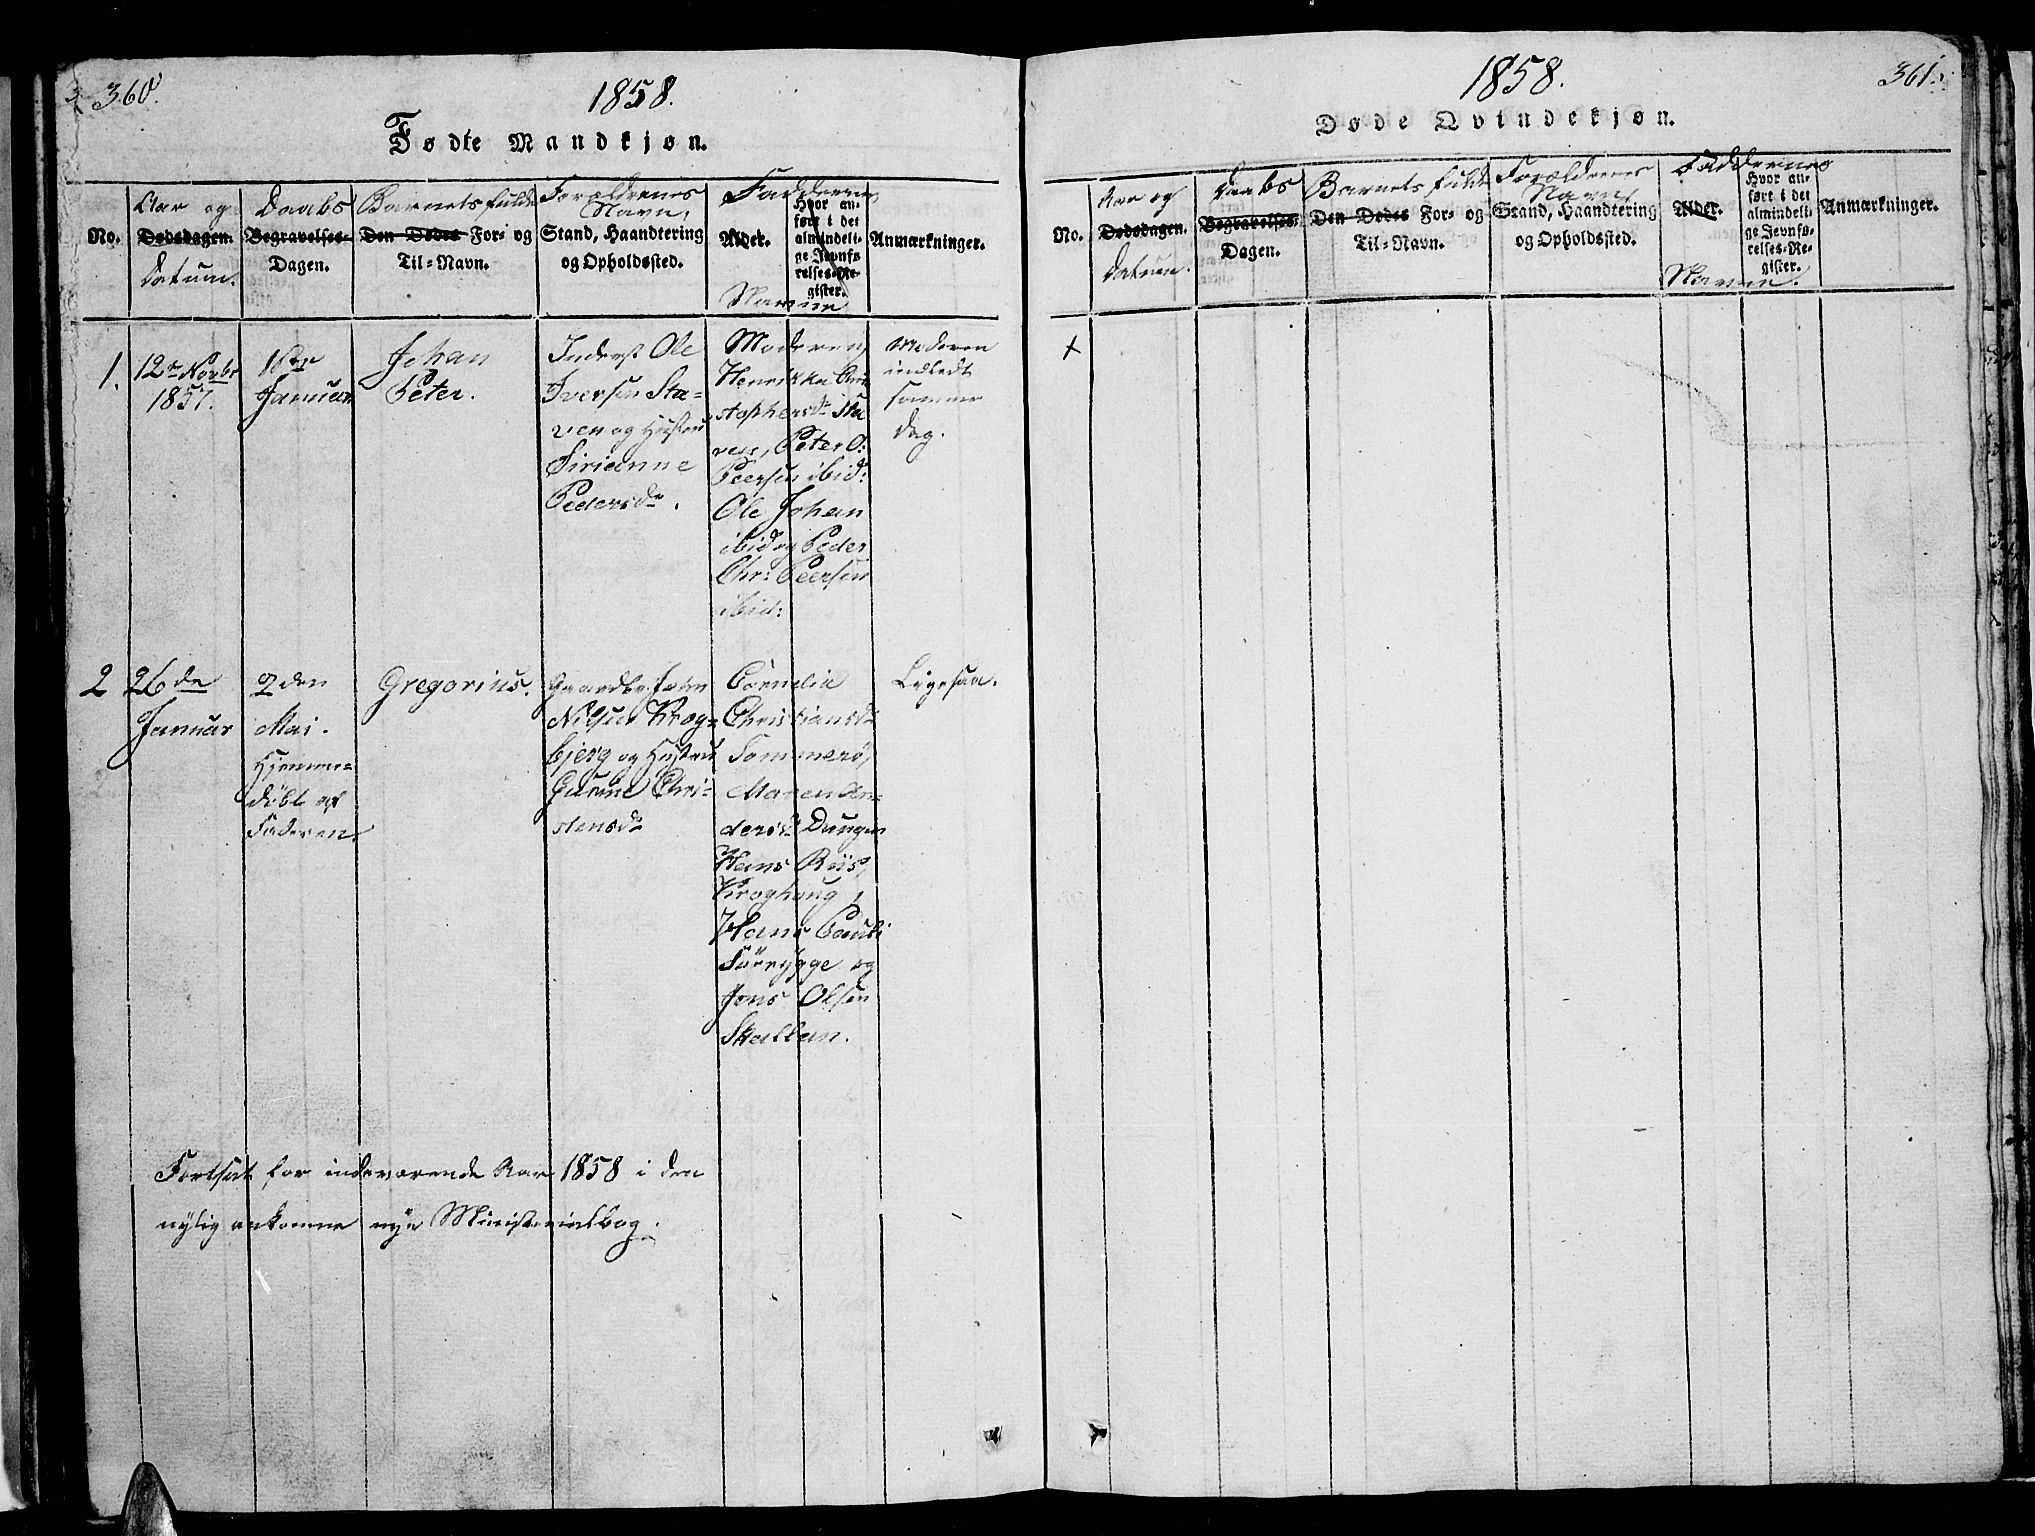 360.
1858.
Fødte Mandkjøn.
No.
Aar og
Dødsdagen.
Datum.
Daabs
Begravelses-
Dagen.
Barnets fulde
Den Dødes For- og
Til-Navn.
Forældrenes
Navn,
Stand, Haandtering
og Opholdssted.
Faddernes
Alder.
Hvor an-
ført i det
almindeli-
ge Jevnfø-
relses-Re-
gister.
Navne
Anmærkninger.
1.
12te Novbr
1857.
Januar
Johan
Peter.
Inderst Ole
Iversen Sta-
ven og Hustru
Sirianne
Pedersdr.
Moderen,
Henrikka Chri
stophersdr Sta
ven, Peter O:
Peersen ibid:
Ole Johan
ibid og Peder
Chr: Peersen
ibid:
Moderen
indledt
samme
Dag.
2
26de
Januar
2den
Mai.
Hjemme-
døbt af
Faderen.
Gregorius.
Gaardbr. John
Nilsen Krog-
bjerg og Hustru
Gurine Chri-
stensdr
Cornelia
Christiansdr
Sommerø,
Maren An-
dersdr
Hans Riis,
Kroghaug,
Hans Pauli
og
Jens Olsen
Skallan.
Ligesaa.
Fortsat for indeværende Aar 1858 i den
nylig ankomne nye Ministerialbog.
1858.
361.
Døde Qvindekjøn.
No.
Aar og
Dødsdagen.
Datum.
Daabs
Begravelses-
Dagen.
Barnets fulde
Den Dødes For- og
Til-Navn.
Forældrenes
Navn,
Stand, Haandtering
og Opholdssted.
Faddernes
Alder.
Hvor an-
ført i det
almindeli-
ge Jevnfø-
relses-Re-
gister.
Navne.
Anmærkninger.
x